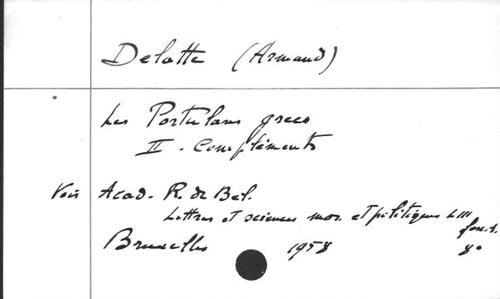 Delatte (Armand)
Les Portulans grecs
II - Compléments
Voir Acad. R. de Bel.
Lettres et sciences mor. et politiques LIII
fasc. 1.
Bruxelles 1958 8°